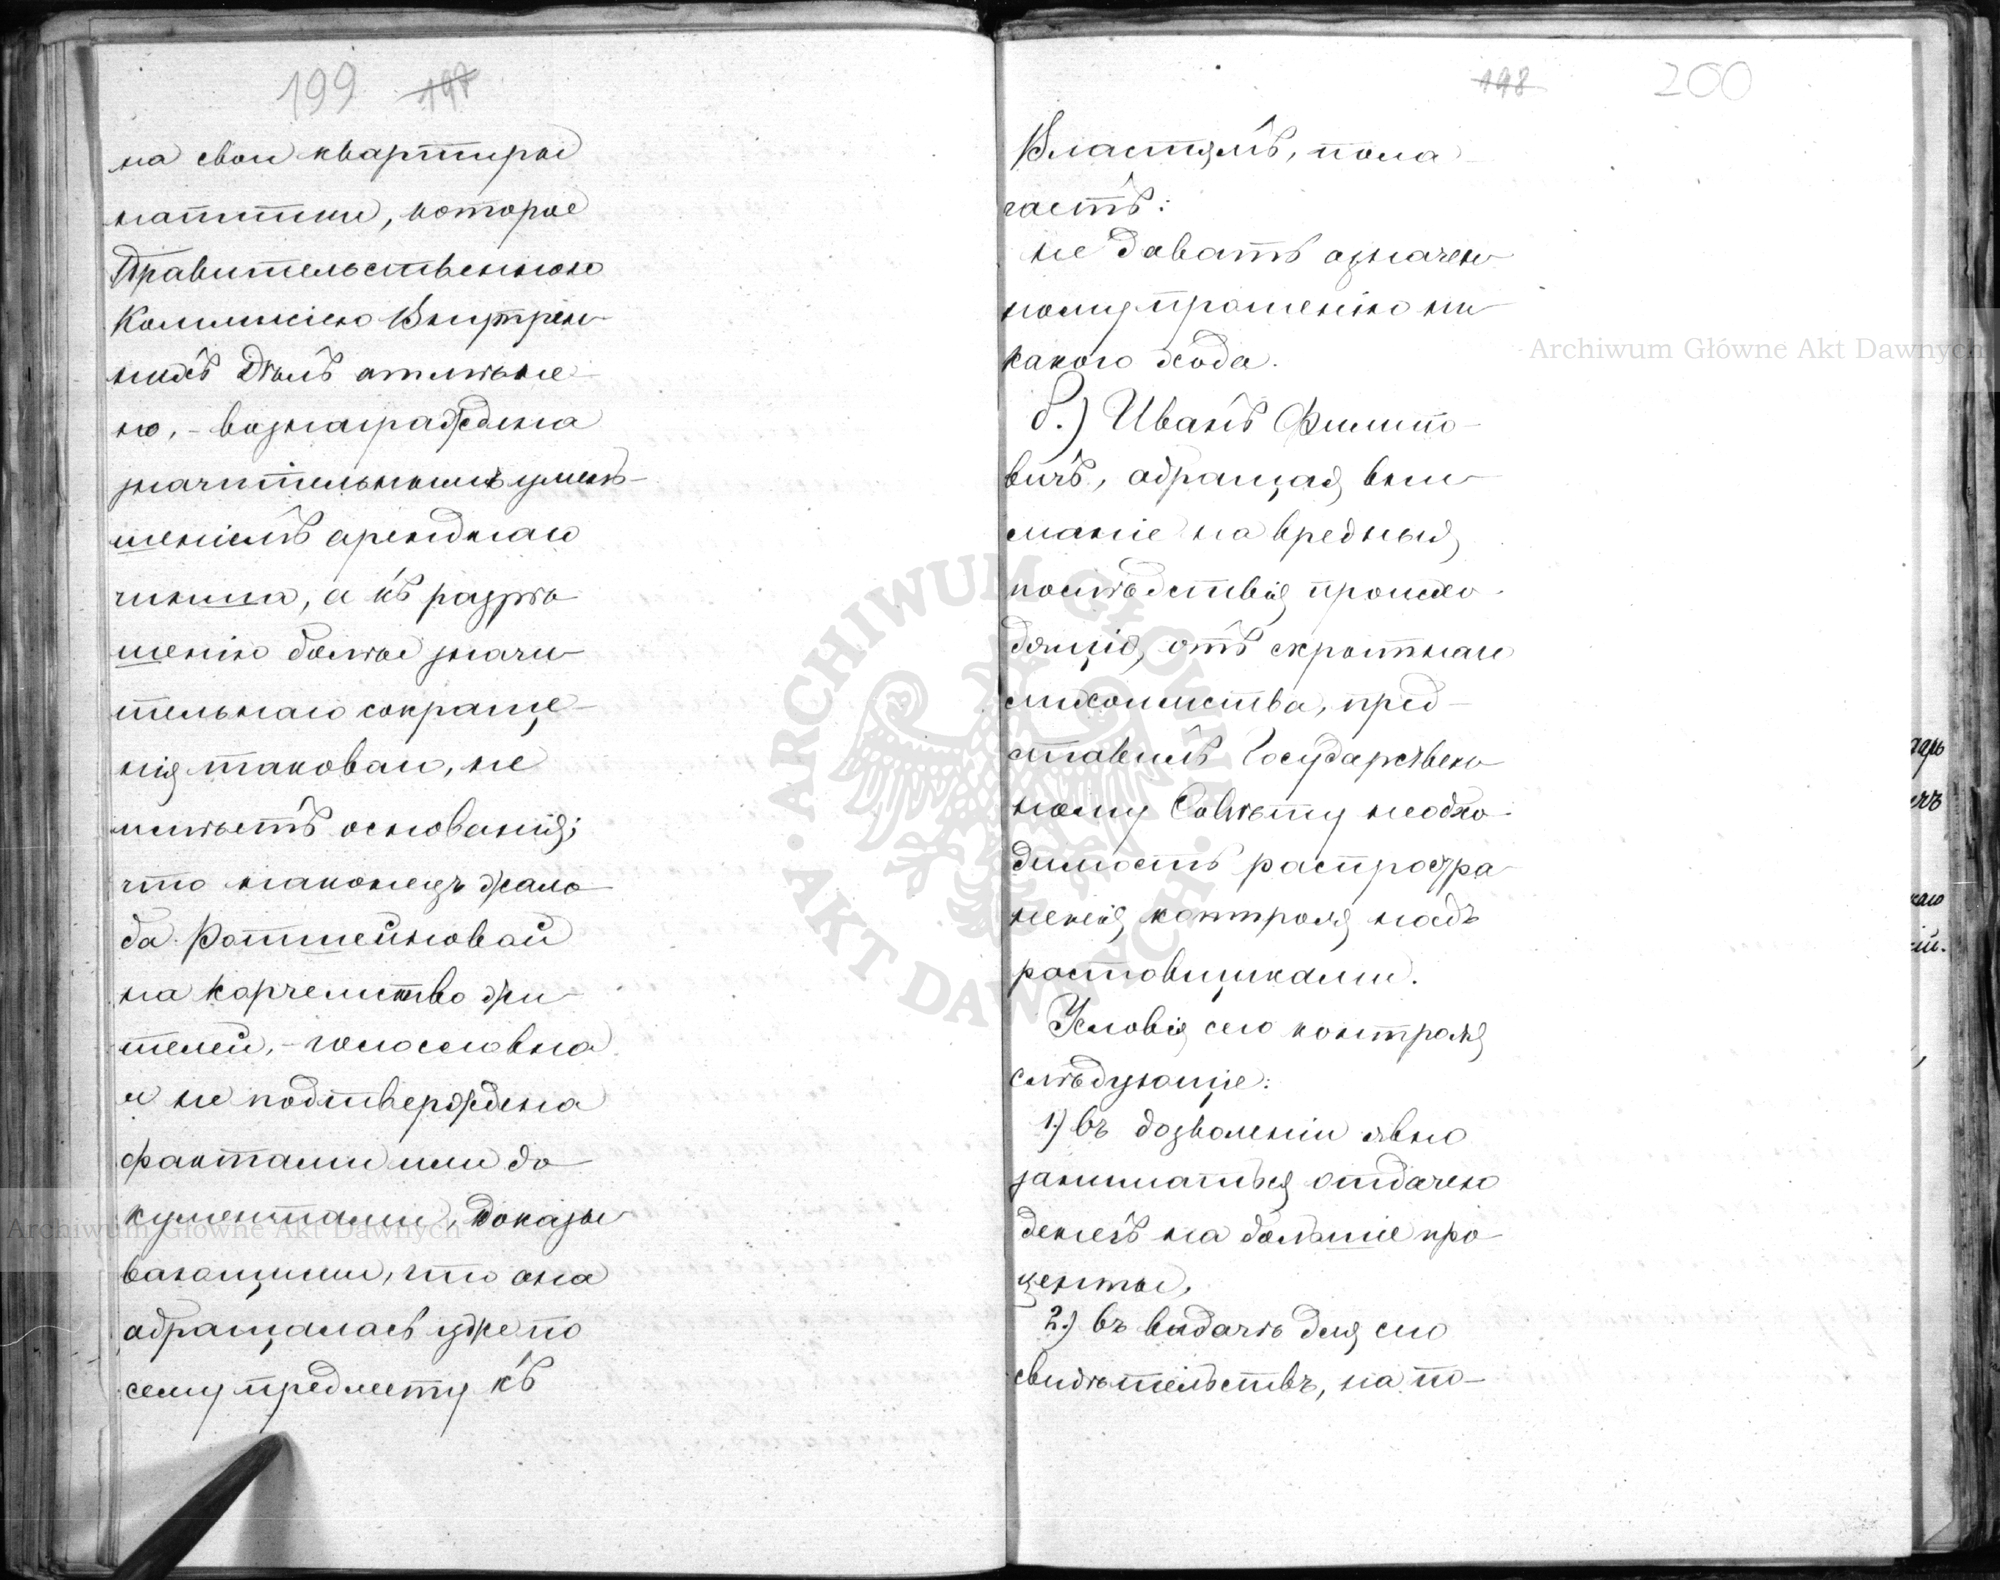 199 197
на свои квартиры
напитки, которое
Правительственною
Коммисiею Внутрен-
нихъ Дѣлъ отмѣне-
но, - вознаграждена
значительнымъ умень-
шенiемъ аренднаго
чинша, а къ разрѣ-
шенiю болѣе значи-
тельнаго сокраще-
нiя таковаго, не
имѣетъ основанiя;
что наконецъ жало-
ба Ротштейновой
на корчемство жи-
телей, - голословна
и не подтверждена
фактами или до-
кументами, доказы-
вающими, что она
обращалась уже по
сему предмету къ
198 200
Властямъ, пола-
гастъ:
не давать означен-
ному прошенiю ни-
какого хода.
б.) Иванъ Филипо-
вичъ, обращая вни-
манiе на вредныя
послѣдствiя происхо-
дящiя, отъ скрытнаго
лихоимства, пред-
ставилъ Государствен-
ному Совѣту необхо-
димость распростра-
ненiя контроля надъ
ростовщиками.
Условiя сего контроля
слѣдующiе:
1.) въ дозволенiи явно
заниматься отдачею
денегъ на большiе про-
центы,
2.) въ выдачѣ для сего
свидѣтельствъ, на по-
Archiwum Główne Akt Dawnych
Archiwum Główne Akt Dawnych
ARCHIWUM GŁÓWNE · AKT DAWNYCH ·